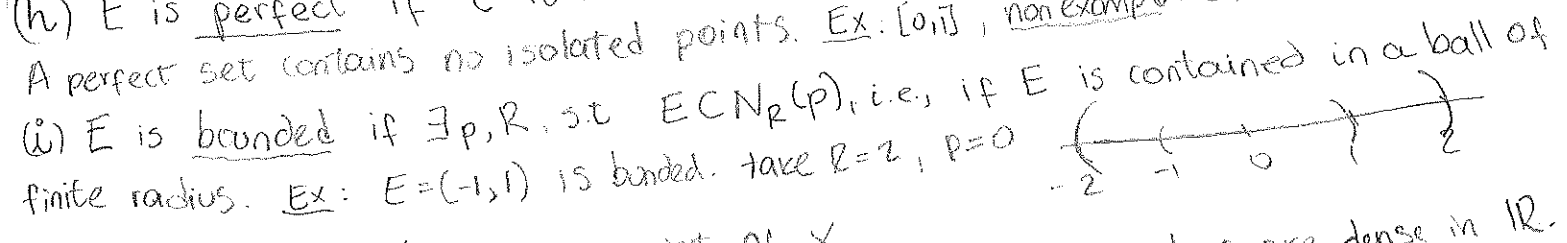 (h) E is perfect if
A perfect set contains no isolated points. Ex: [0,1], non
(i) E is bounded if ∃p,R, s.t E⊂N_R(p), i.e., if E is contained in a ball of
finite radius. Ex: E=(-1,1) is bunded. take R=2, p=0
-2 -1 0 1 2
dense in ℝ.